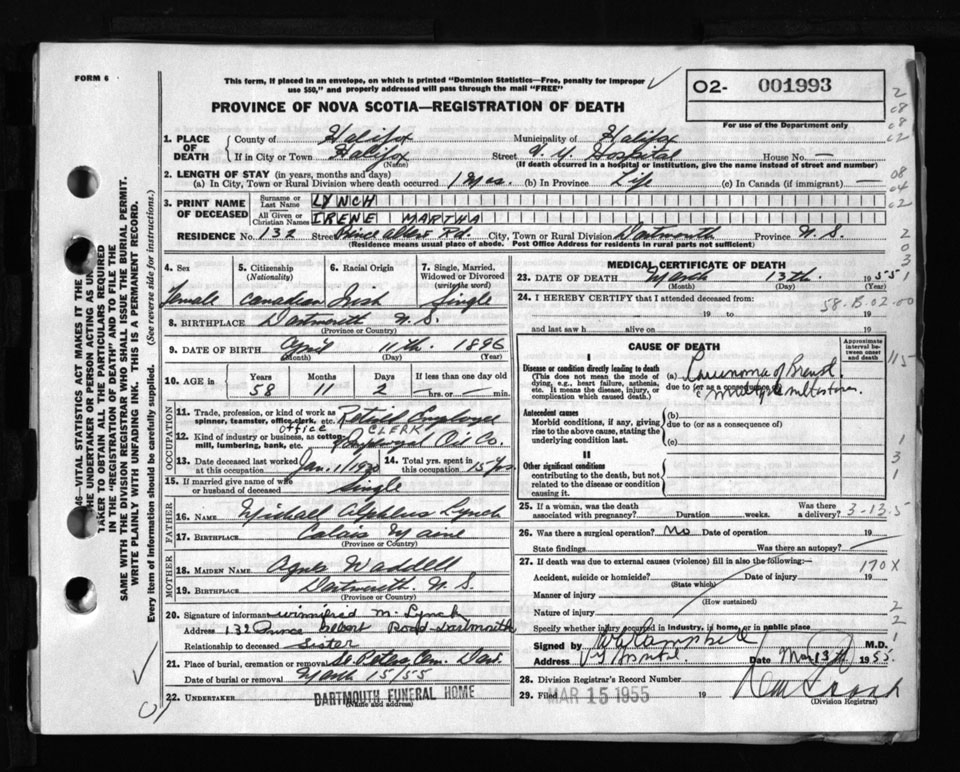 FORM 6
This form, if placed in an envelope, on which is printed "Dominion Statistics—Free, penalty for improper
use $50," and properly addressed will pass through the mail "FREE"
O2- 001993
PROVINCE OF NOVA SCOTIA—REGISTRATION OF DEATH
For use of the Department only
1. PLACE OF DEATH
County of Halifax Municipality of Halifax
If in City or Town Halifax Street Hospital House No. —
(Name) (If death occurred in a hospital or institution, give the name instead of street and number)
2. LENGTH OF STAY (in years, months and days)
(a) In City, Town or Rural Division where death occurred 1 Mos. (b) In Province Life (c) In Canada (if immigrant) —
3. PRINT NAME OF DECEASED
Surname or Last Name LYNCH
All Given or Christian Names IRENE MARTHA
RESIDENCE No. 132 Street Prince Albert Rd. City, Town or Rural Division Dartmouth Province N.S.
(Residence means usual place of abode. Post Office Address for residents in rural parts not sufficient)
4. Sex Female
5. Citizenship (Nationality) Canadian
6. Racial Origin Irish
7. Single, Married, Widowed or Divorced (write the word) Single
8. BIRTHPLACE Dartmouth N.S.
(Province or Country)
9. DATE OF BIRTH April 11th 1896
(Month) (Day) (Year)
10. AGE in Years Months Days If less than one day old
58 11 2 hrs. or min.
OCCUPATION
11. Trade, profession, or kind of work as spinner, teamster, office clerk, etc. Retired Employee
office CLERK
12. Kind of industry or business, as cotton mill, lumbering, bank, etc. Oil Co.
13. Date deceased last worked at this occupation Jan.
14. Total yrs. spent in this occupation 15 yrs.
15. If married give name of wife or husband of deceased Single
FATHER
16. NAME Michael Lynch
17. BIRTHPLACE Calais Maine
(Province or Country)
MOTHER
18. MAIDEN NAME Agnes Waddell
19. BIRTHPLACE Dartmouth N.S.
(Province or Country)
20. Signature of informant Winnifrid M. Lynch
Address 132 Prince Albert Road - Dartmouth
Relationship to deceased Sister
21. Place of burial, cremation or removal St. Peters Cem. Dart.
Date of burial or removal March 15/55
22. UNDERTAKER DARTMOUTH FUNERAL HOME
(Name and address)
MEDICAL CERTIFICATE OF DEATH
23. DATE OF DEATH March 13th 1955
(Month) (Day)
24. I HEREBY CERTIFY that I attended deceased from:
19 to 19
58-B.02-00
and last saw h alive on 19
CAUSE OF DEATH
Approximate interval between onset and death
I
Disease or condition directly leading to death
(This does not mean the mode of dying, e.g., heart failure, asthenia, etc. It means the disease, injury, or complication which caused death.)
(a) Carcinoma of Breast
due to (or as a consequence of)
Antecedent causes
Morbid conditions, if any, giving rise to the above cause, stating the underlying condition last.
(b)
due to (or as a consequence of)
(c)
II
Other significant conditions
contributing to the death, but not related to the disease or condition causing it.
25. If a woman, was the death associated with pregnancy? Duration weeks. Was there a delivery?
3-13-5
26. Was there a surgical operation? No Date of operation 19
State findings Was there an autopsy?
27. If death was due to external causes (violence) fill in also the following:—
170X
Accident, suicide or homicide? Date of injury 19
(State which)
Manner of injury
(How sustained)
Nature of injury
Specify whether injury occurred in industry, in home, or in public place
Signed by Campbell M.D.
Address Date Mar 13th 1955.
28. Division Registrar's Record Number
29. Filed MAR 15 1955 19
(Division Registrar)
SAME WITH THE DIVISION REGISTRAR WHO SHALL ISSUE THE BURIAL PERMIT.
WRITE PLAINLY WITH UNFADING INK. THIS IS A PERMANENT RECORD.
Every item of Information should be carefully supplied. (See reverse side for instructions.)